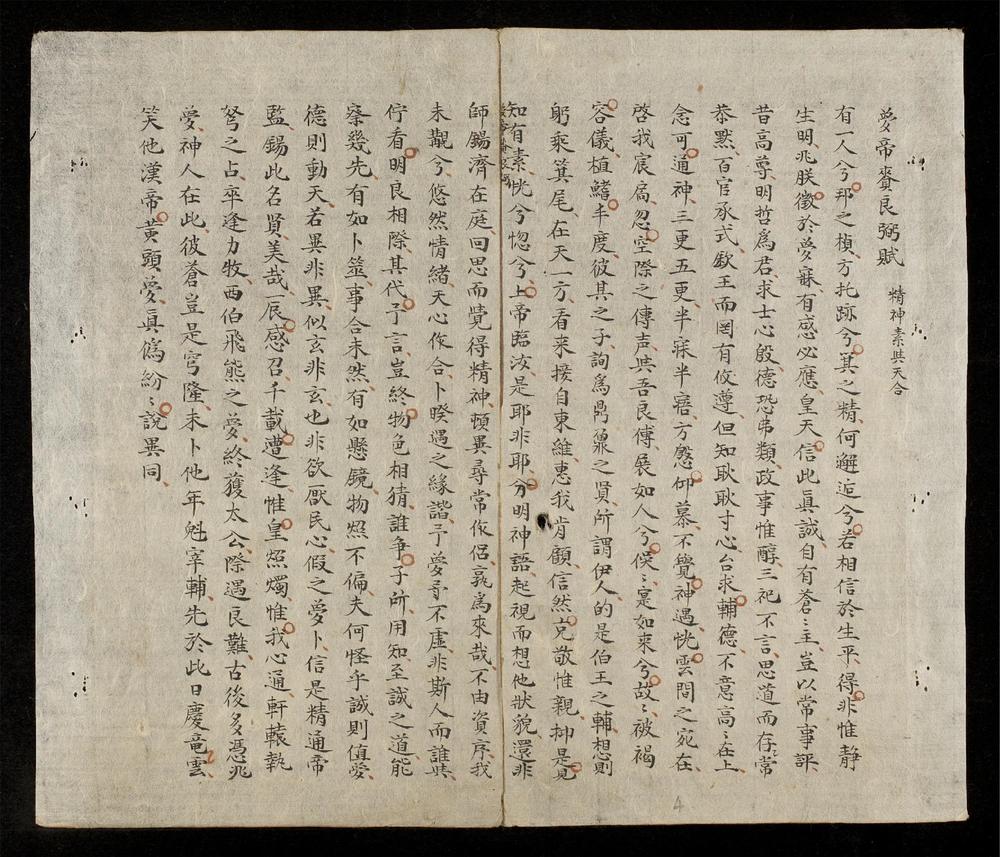 夢帝賚良弼賦 精神素與天合
有一人兮邦之楨方托跡兮箕之精何邂逅兮若相信於生平得非惟靜
生明兆朕徵於夢寐有感必應皇天信此眞誠自有蒼〻主豈以常事評
昔高尊明哲爲君求士心殷德恐弗類政事惟醇三祀不言思道而存常
恭默百官承式歉王而罔有攸遵但知耿耿寸心台求輔德不意高〻在上
念可通神三更五更半寐半寤方慇仰慕不覺神遇恍雲間之宛在
啓我宸扃忽空際之傳声與吾良傅展如人兮俁〻寔如來兮故〻被褐
容儀植鰭丰度彼其之子詢爲鼎鼐之賢所謂伊人的是伯王之輔想則
躬乘箕尾在天一方看來接自東維惠我肯顧信然克敬惟親抑是見
知有素恍兮惚兮上帝臨汝是耶非耶分明神語起視而想他狀貌還非
師錫濟在庭回思而覺得精神頓異尋常依侣孰爲來哉不由資序我
未觀兮悠然情緒天心作合卜暌遇之緣諧予夢予不虛非斯人而誰與
佇看明良相際其代予言豈終物色相猜誰爭子所用知至誠之道能
察幾先有如卜筮事合未然有如懸鏡物炤不偏夫何怪乎誠則值愛
德則動天若異非異似玄非玄也非欲厭民心假之夢卜信是精通帝
監錫此名賢美哉一辰感召千載遭逢惟皇炤燭惟我心通軒轅執
弩之占卒逢力牧西伯飛熊之夢終獲太公際遇良難古後多憑兆
夢神人在此彼蒼豈是穹隆未卜他年魁宰輔先於此日慶竜雲
笑他漢帝黃頭夢眞僞紛〻說異同
4